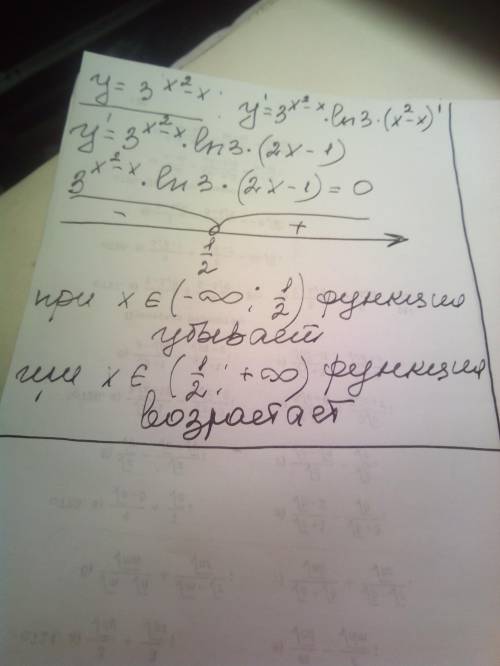 y = 3^(x²-x) . y' = 3^(x²-x) · ln3 · (x²-x)'
y' = 3^(x²-x) · ln3 · (2x-1)
3^(x²-x) · ln3 · (2x-1) = 0
- +
1/2
при x ∈ (-∞; 1/2) функция
убывает
при x ∈ (1/2; +∞) функция
возрастает